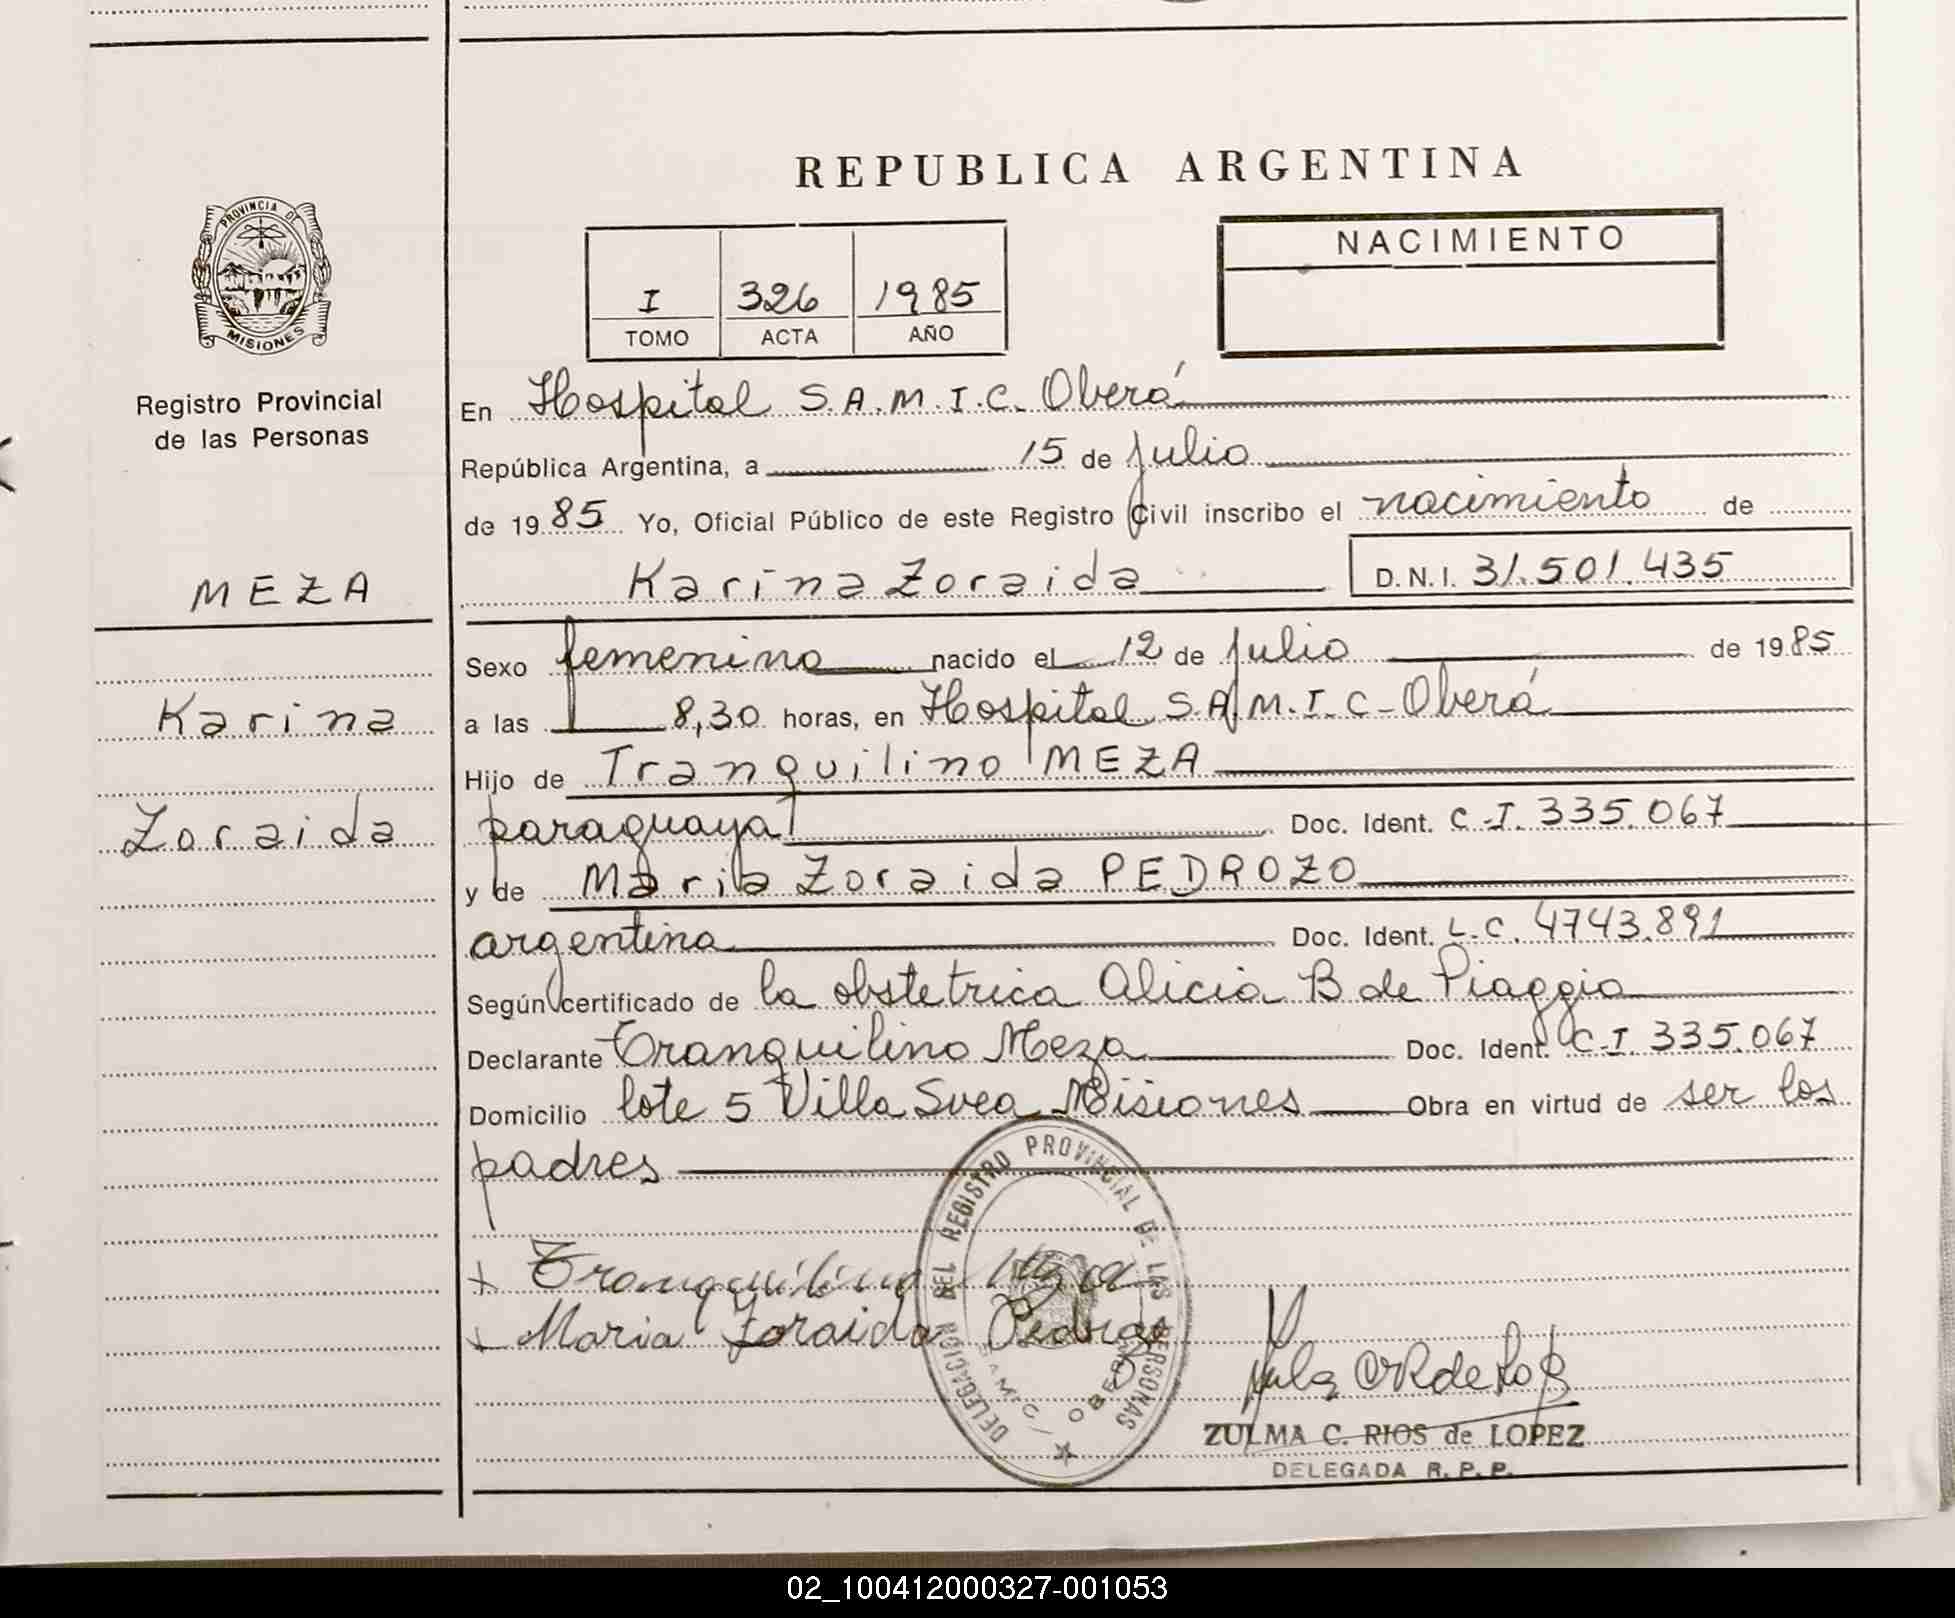 REPUBLICA ARGENTINA
PROVINCIA DE
MISIONES
Registro Provincial
de las Personas
I 326 1985
TOMO ACTA AÑO
NACIMIENTO
En Hospital S.A.M.I.C. Oberá
República Argentina, a 15 de Julio
de 1985 Yo, Oficial Público de este Registro Civil inscribo el nacimiento de
Karina Zoraida D.N.I. 31.501.435
MEZA
Karina
Zoraida
Sexo femenino nacido el 12 de Julio de 1985
a las 8,30 horas, en Hospital S.A.M.I.C-Oberá
Hijo de Tranquilino MEZA
paraguaya Doc. Ident. C.I. 335.067
y de Maria Zoraida PEDROZO
argentina Doc. Ident. L.C. 4743.891
Según certificado de la obstetrica Alicia B de Piaggio
Declarante Tranquilino Meza Doc. Ident. C.I. 335.067
Domicilio lote 5 Villa Svea Misiones Obra en virtud de ser los
padres
Tranquilino Meza
Maria Zoraida Pedrozo
DELEGACION DEL REGISTRO PROVINCIAL DE LAS PERSONAS
SAMIC / OBERA
ZULMA C. RIOS de LOPEZ
DELEGADA R.P.P.
02_100412000327-001053